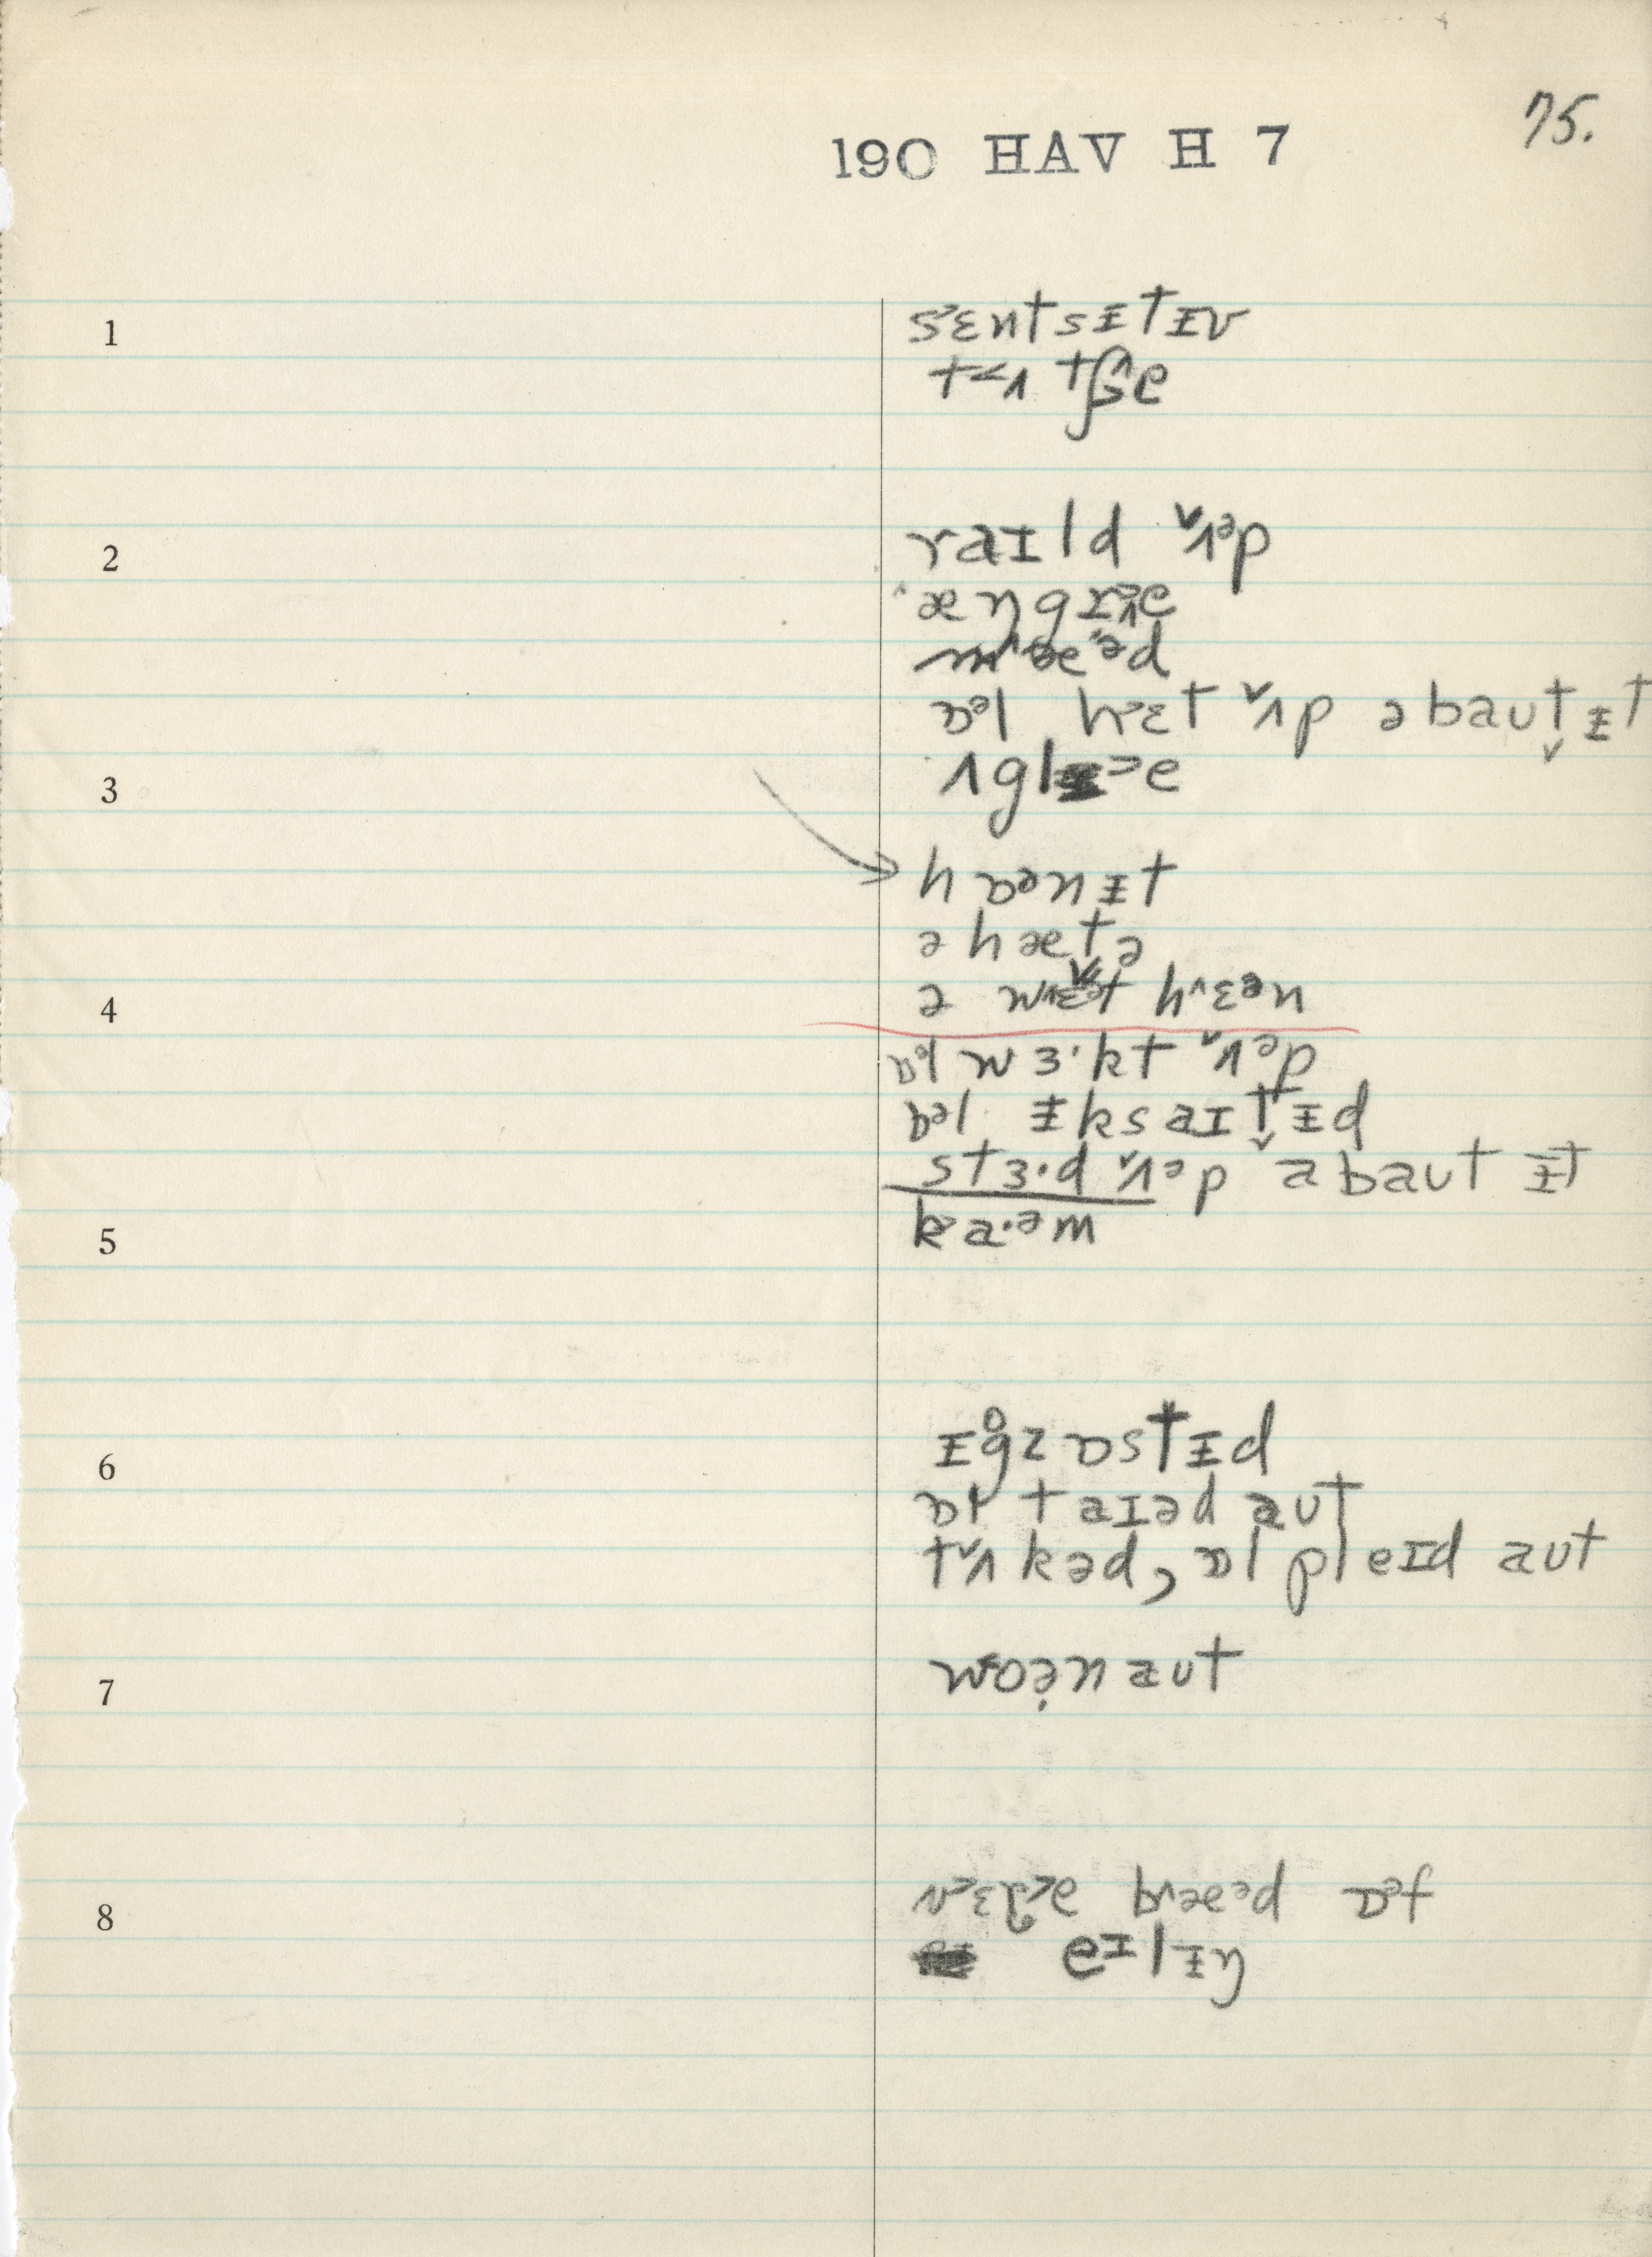 75.
190 HAV H 7
1 sɛntsɨtɪv
tʌtʃe
2 raɪld ʌəp
æŋgrɪe
mæəd
ɒəl hɛt ʌp əbaut ɨt
3 ʌglɪe
hɒənɨt
ə hætə
4 ə wɛt hɛən
ɒl wɜ·kt ʌəp
ɒəl ɨksaɪtɨd
stɜ·d ʌəp əbaut ɨt
5 ka·əm
6 ɪgzɒstɨd
ɒl taɪəd aut
tʌkəd, ɒl pleɪd aut
7 woən aut
8 vɛre bæəd ɒəf
eɪlɨŋ